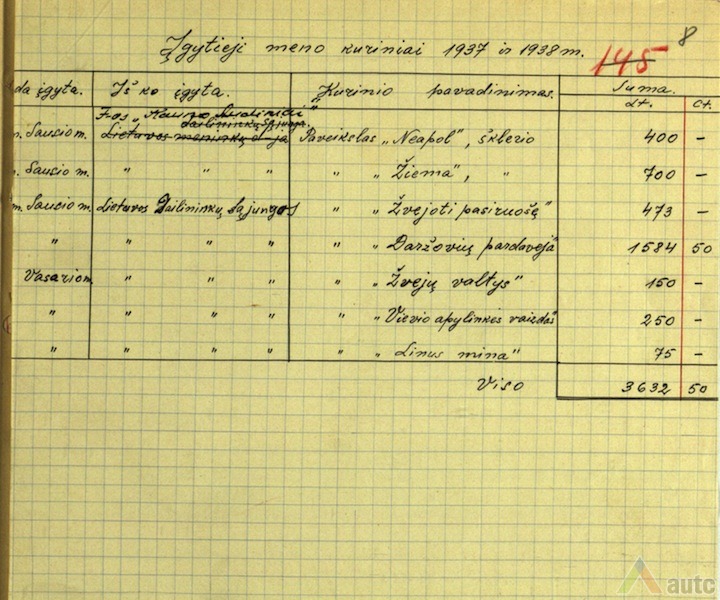 Įgytieji meno kuriniai 1937 ir 1938 m. 145 8
da įgyta. Iš ko įgyta. Kurinio pavadinimas. Suma.
Lt. Ct.
Fos „Kauno Audiniai"
Dailininkų Sąjunga.
Sausio m. Lietuvos meninkų d-ja Paveikslas „Neapol", šklerio 400 —
Sausio m. " " " " „Žiema", " 700 —
m. Sausio m. Lietuvos Dailininkų Sąjungos " „Žvejoti pasiruošę" 473 —
" " " " " „Daržovių pardavėja" 1584 50
Vasario m. " " " " „Žvejų valtys" 150 —
" " " " " „Vievio apylinkės vaizdas" 250 —
" " " " " „Linus mina" 75 —
Viso 3632 50
autc